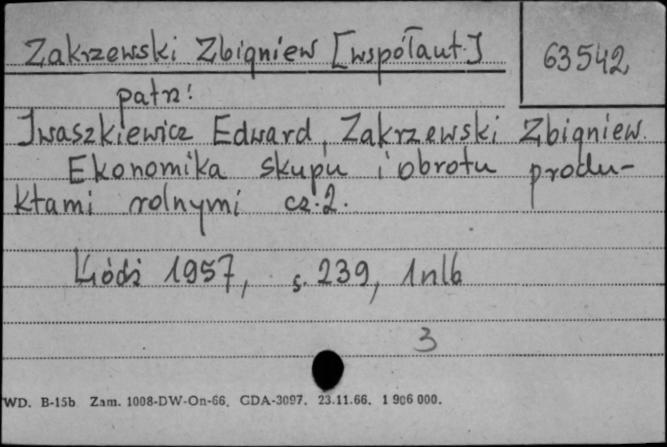 Zakrzewski Zbigniew [współaut.]
63542
patrz:
Iwaszkiewicz Edward, Zakrzewski Zbigniew.
Ekonomika skupu i obrotu produ-
ktami rolnymi cz. 2.
Łódź 1957, s. 239, 1 nlb
3
WD. B-15b Zam. 1008-DW-On-66. CDA-3097. 23.11.66. 1 906 000.